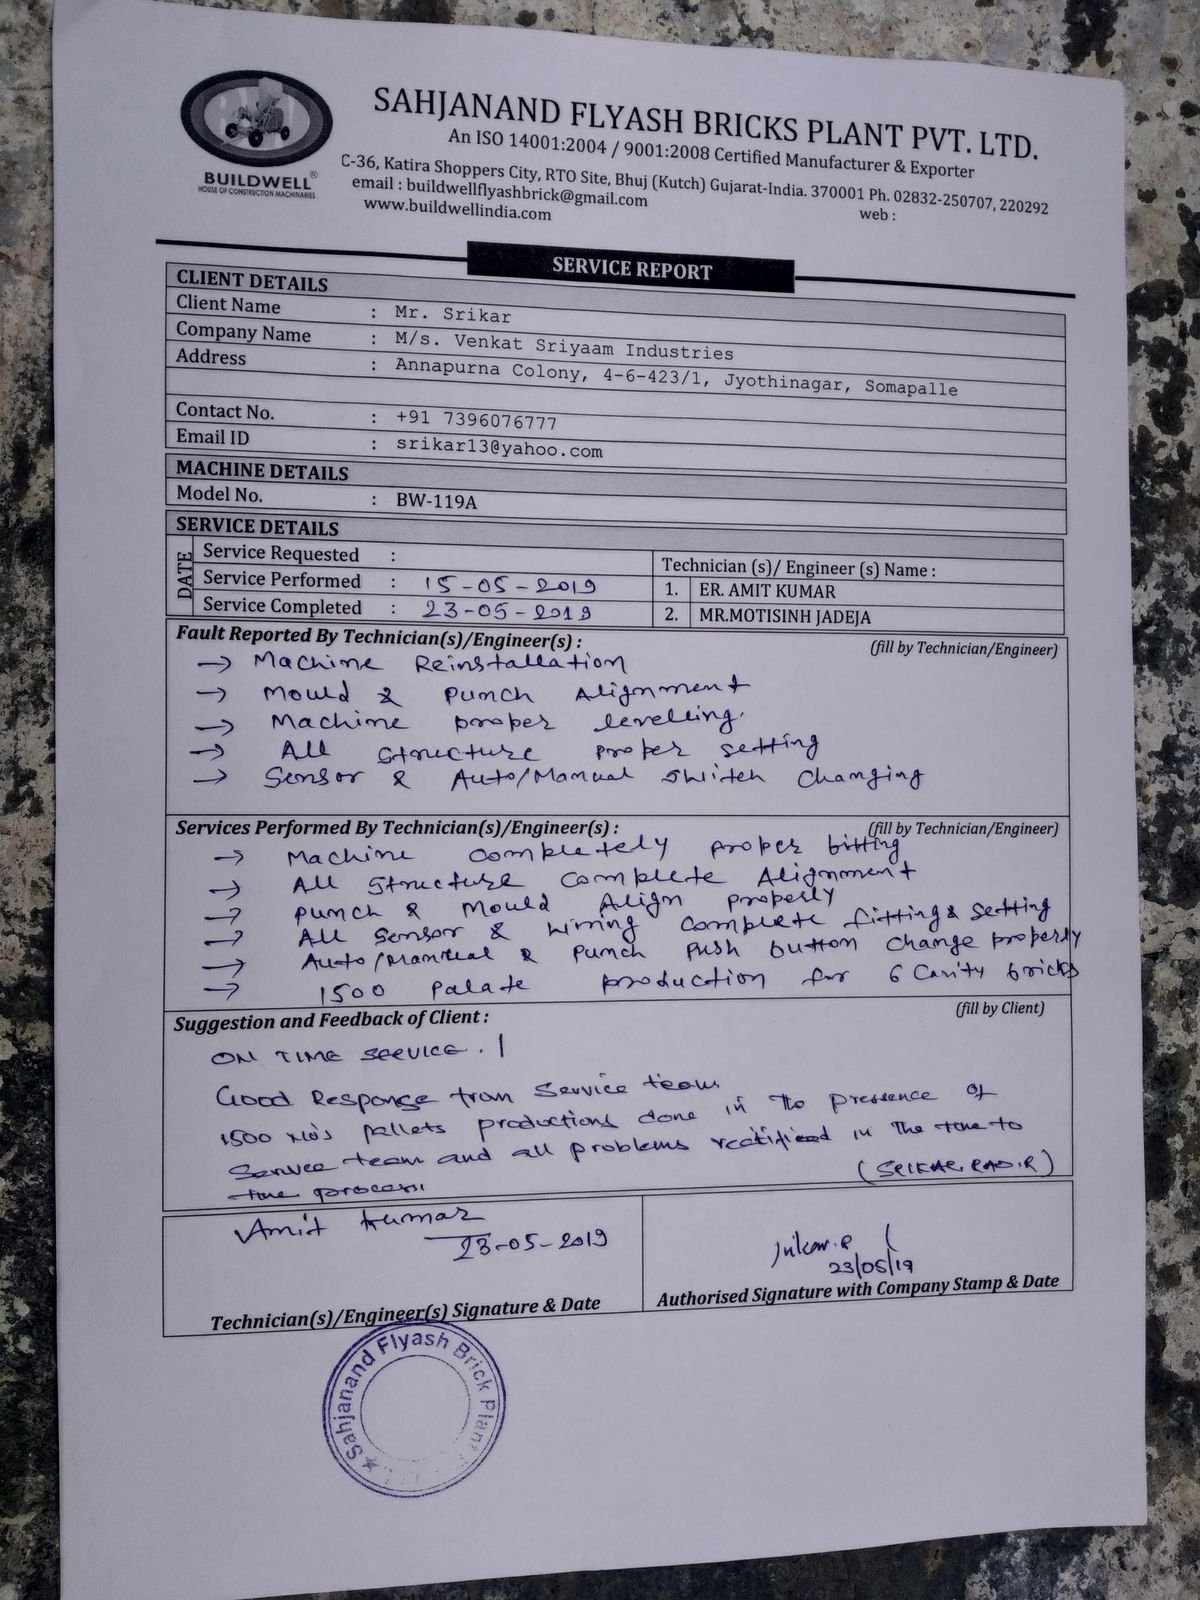 SAHJANAND FLYASH BRICKS PLANT PVT. LTD.
An ISO 14001:2004 / 9001:2008 Certified Manufacturer & Exporter
C-36, Katira Shoppers City, RTO Site, Bhuj (Kutch) Gujarat-India. 370001 Ph. 02832-250707, 220292
email : buildwellflyashbrick@gmail.com web :
www.buildwellindia.com
BUILDWELL®
HOUSE OF CONSTRUCTION MACHINARIES
SERVICE REPORT
CLIENT DETAILS
Client Name : Mr. Srikar
Company Name : M/s. Venkat Sriyaam Industries
Address : Annapurna Colony, 4-6-423/1, Jyothinagar, Somapalle
Contact No. : +91 7396076777
Email ID : srikar13@yahoo.com
MACHINE DETAILS
Model No. : BW-119A
SERVICE DETAILS
DATE
Service Requested :
Service Performed : 15-05-2019
Service Completed : 23-05-2019
Technician (s)/ Engineer (s) Name :
1. ER. AMIT KUMAR
2. MR.MOTISINH JADEJA
Fault Reported By Technician(s)/Engineer(s) : (fill by Technician/Engineer)
→ Machine Reinstallation
→ Mould & Punch Alignment
→ Machine proper levelling.
→ All structure proper setting
→ Sensor & Auto/Manual switch changing
Services Performed By Technician(s)/Engineer(s) : (fill by Technician/Engineer)
→ Machine completely proper fitting
→ All structure complete Alignment
→ Punch & Mould Align properly
→ All sensor & wirring complete fitting & setting
→ Auto/Manual & Punch Push button change properly
→ 1500 palate production for 6 Cavity bricks
Suggestion and Feedback of Client : (fill by Client)
ON TIME SERVICE. |
Good Response from Service team
1500 No's pallets productions done in the presence of
Service team and all problems rectified in the time to
time process
(SRIKAR RAO.R)
Amit Kumar
23-05-2019
Srikar.R
23/05/19
Technician(s)/Engineer(s) Signature & Date
Authorised Signature with Company Stamp & Date
Sahjanand Flyash Brick Plant